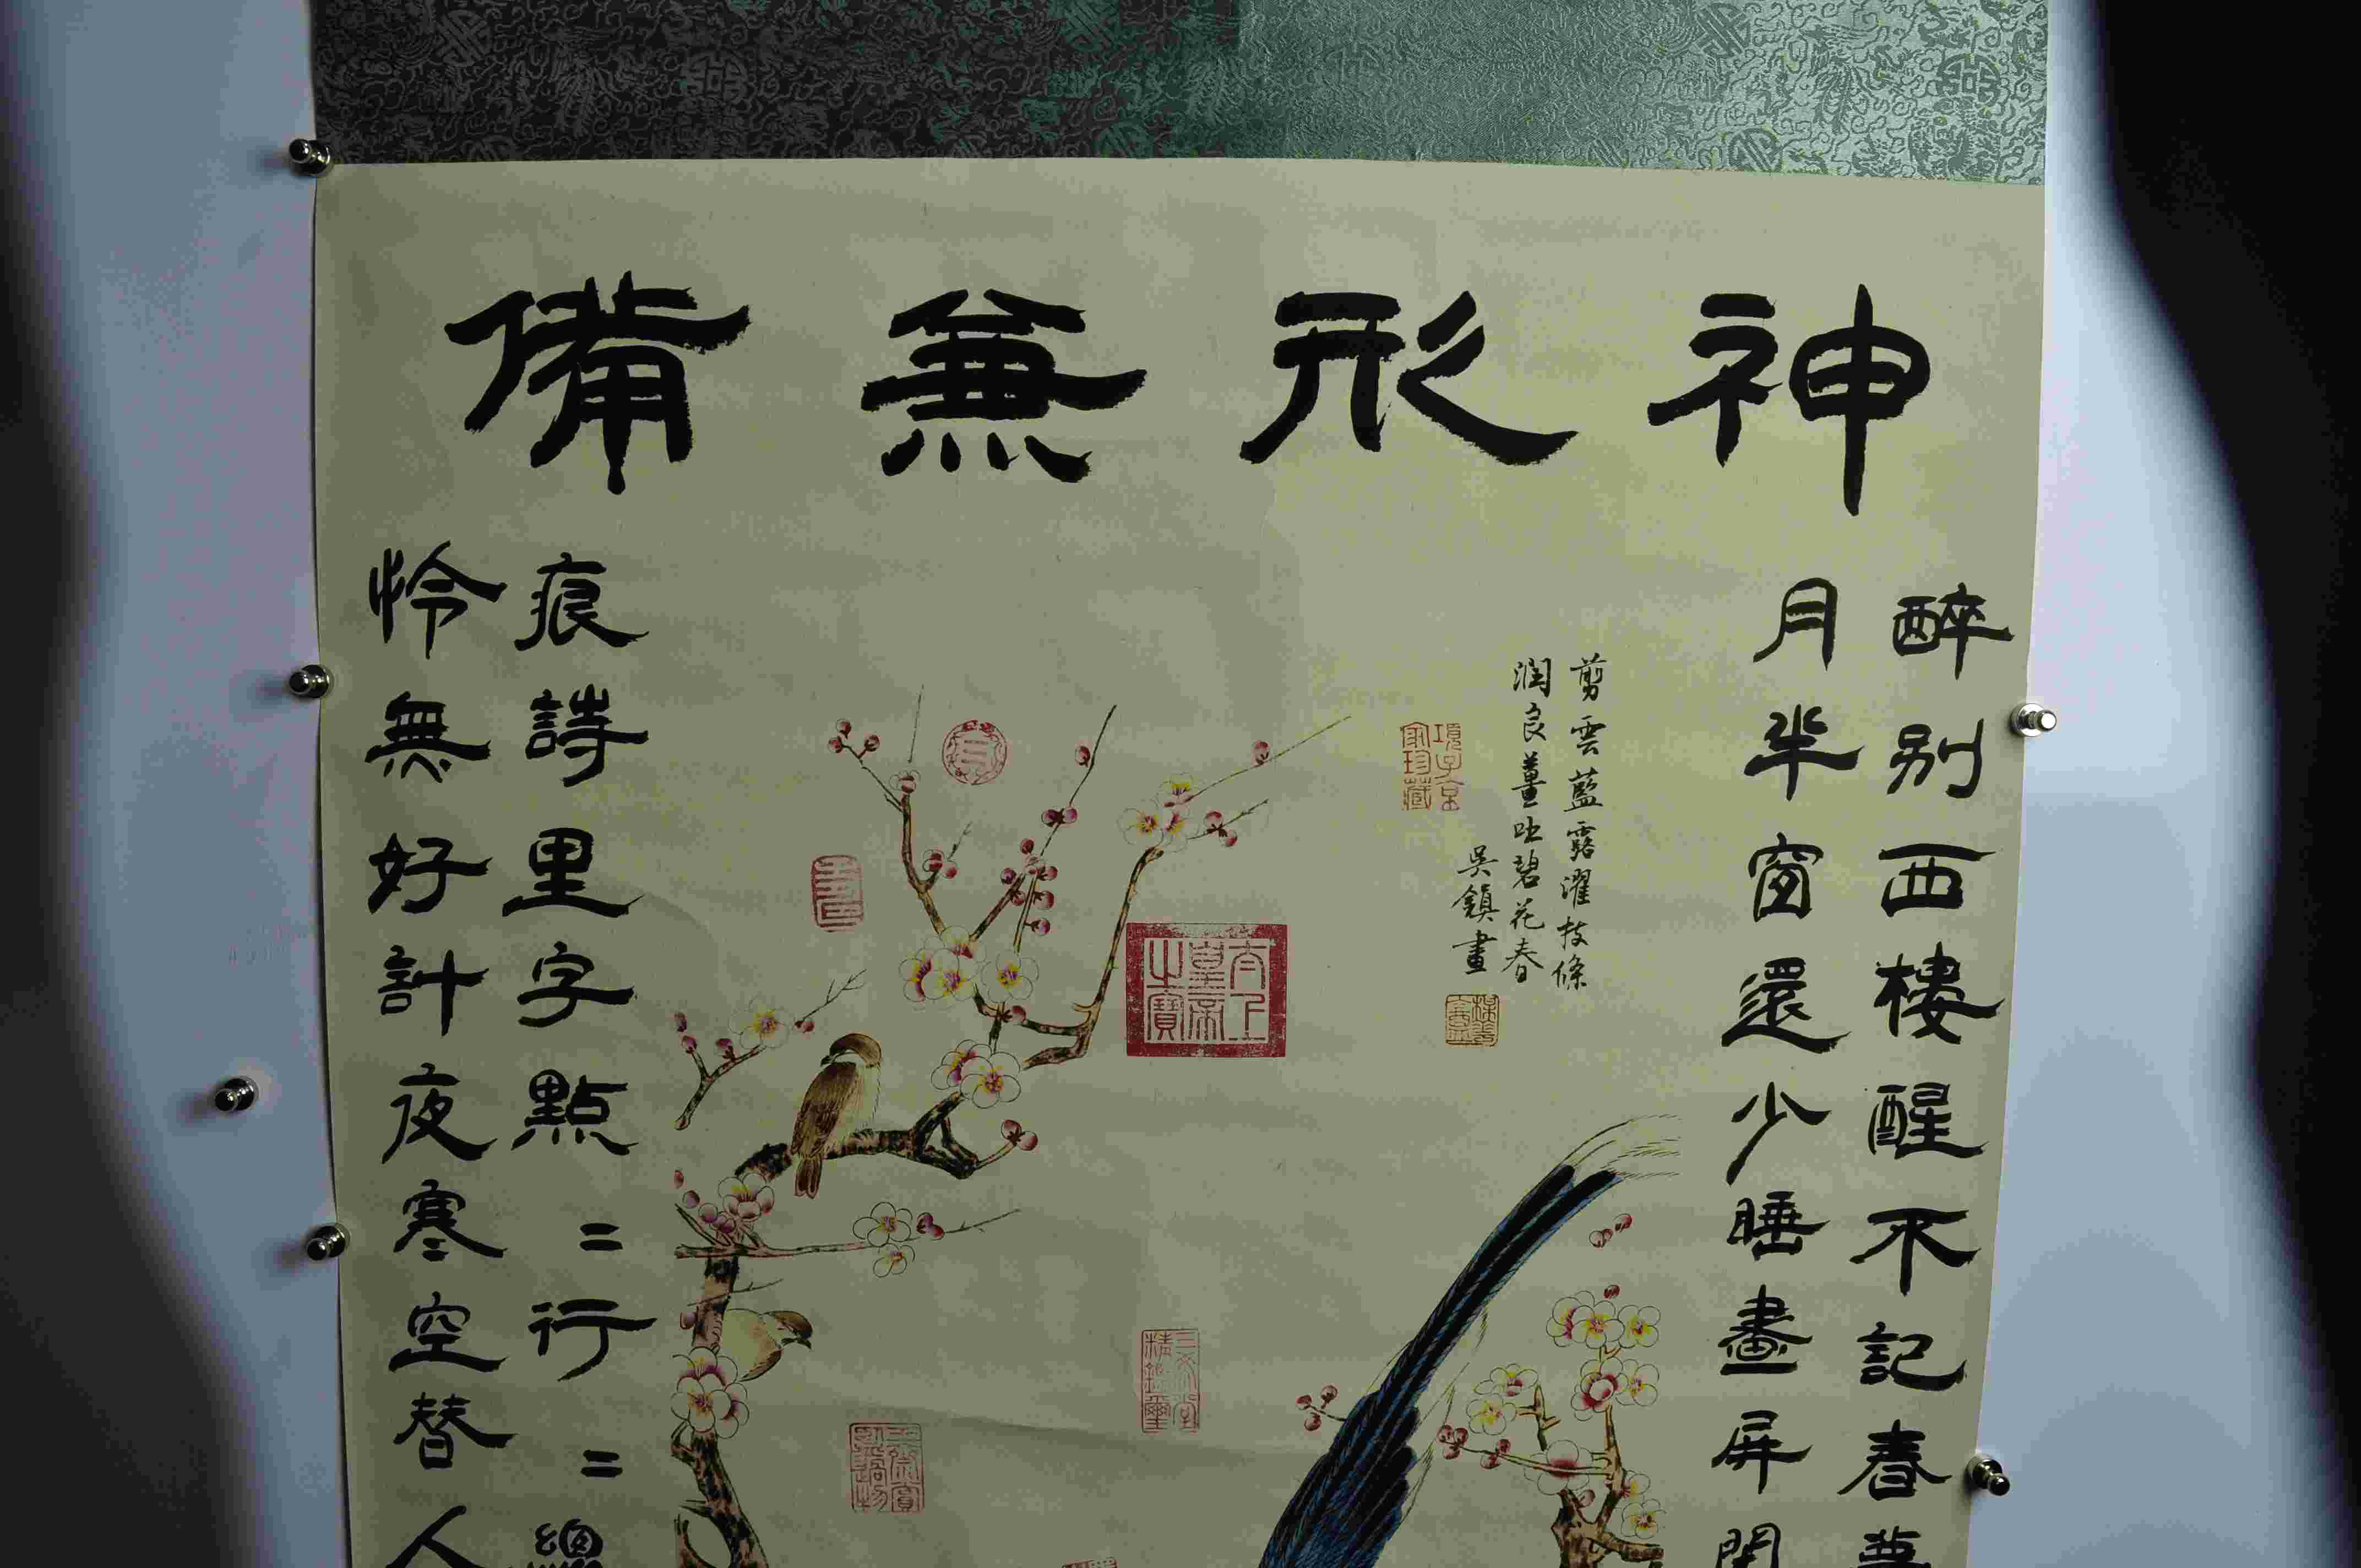 神形兼備
醉别西樓醒不記春夢
月半窗還少睡畫屏閑
剪雲藍露濯枝條
潤良薑吐碧花春
吳鎮畫
項子京家珍藏
太上皇帝之寶
三希堂精鑑璽
壽
痕詩里字點〻行〻總
怜無好計夜寒空替人